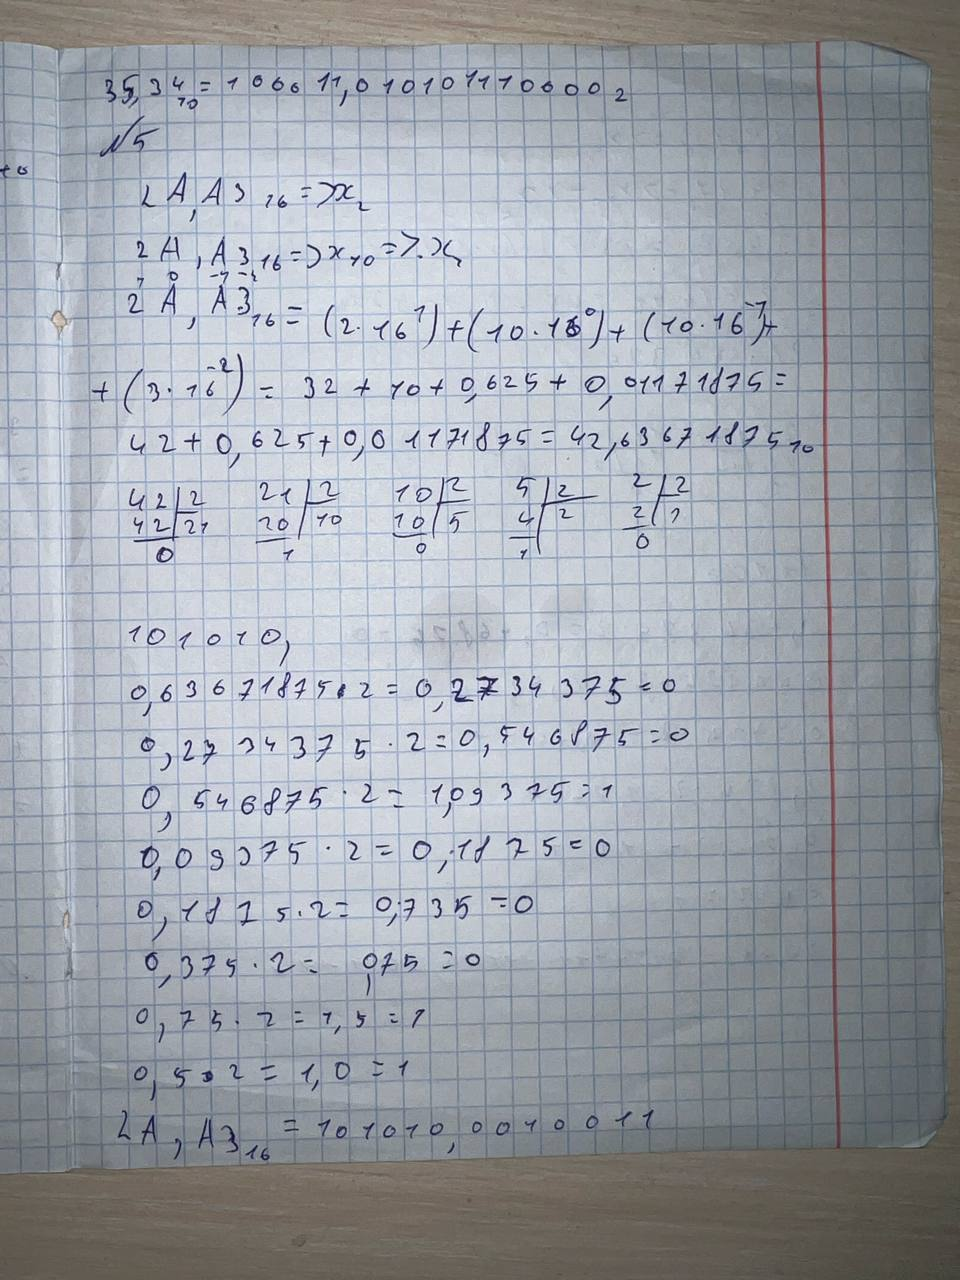 35,34₁₀ = 100011,0101011100002
№5
2A,A3₁₆ => x₂
2A,A3₁₆ => x₁₀ => x₂
1 0 -1 -2
2A,A3₁₆ = (2·16¹)+(10·16⁰)+(10·16⁻¹)+
+(3·16⁻²) = 32+10+0,625+0,01171875=
42+0,625+0,01171875=42,63671875₁₀
42|2 21|2 10|2 5|2 2|2
42|21 20|10 10|5 4|2 2|1
0 1 0 1 0
101010,
0,63671875·2=0,2734375=0
0,2734375·2=0,546875=0
0,546875·2=1,09375=1
0,09375·2=0,1875=0
0,1875·2=0,735=0
0,375·2= 0,75=0
0,75·2=1,5=1
0,5·2=1,0=1
2A,A3₁₆=101010,0010011